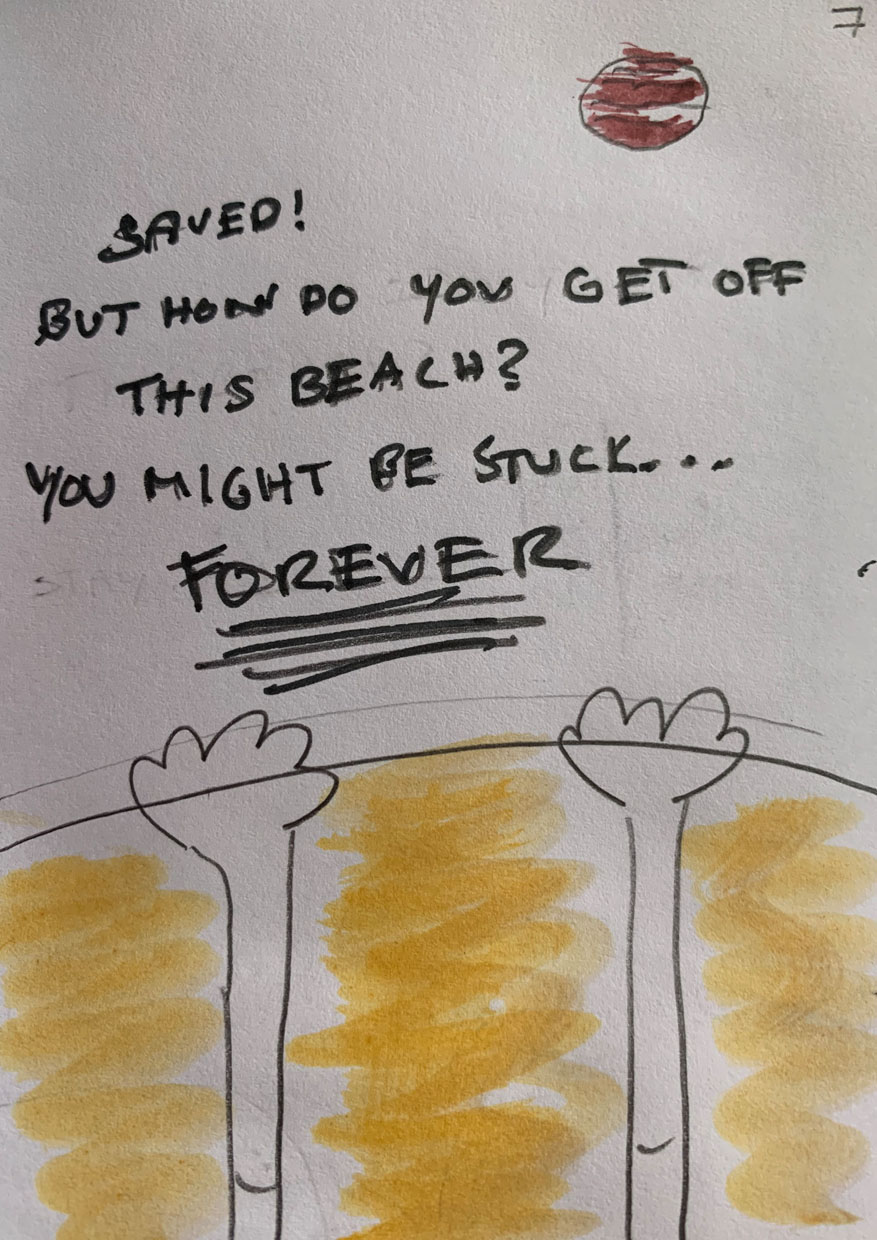 7
SAVED!
BUT HOW DO YOU GET OFF
THIS BEACH?
YOU MIGHT BE STUCK...
FOREVER